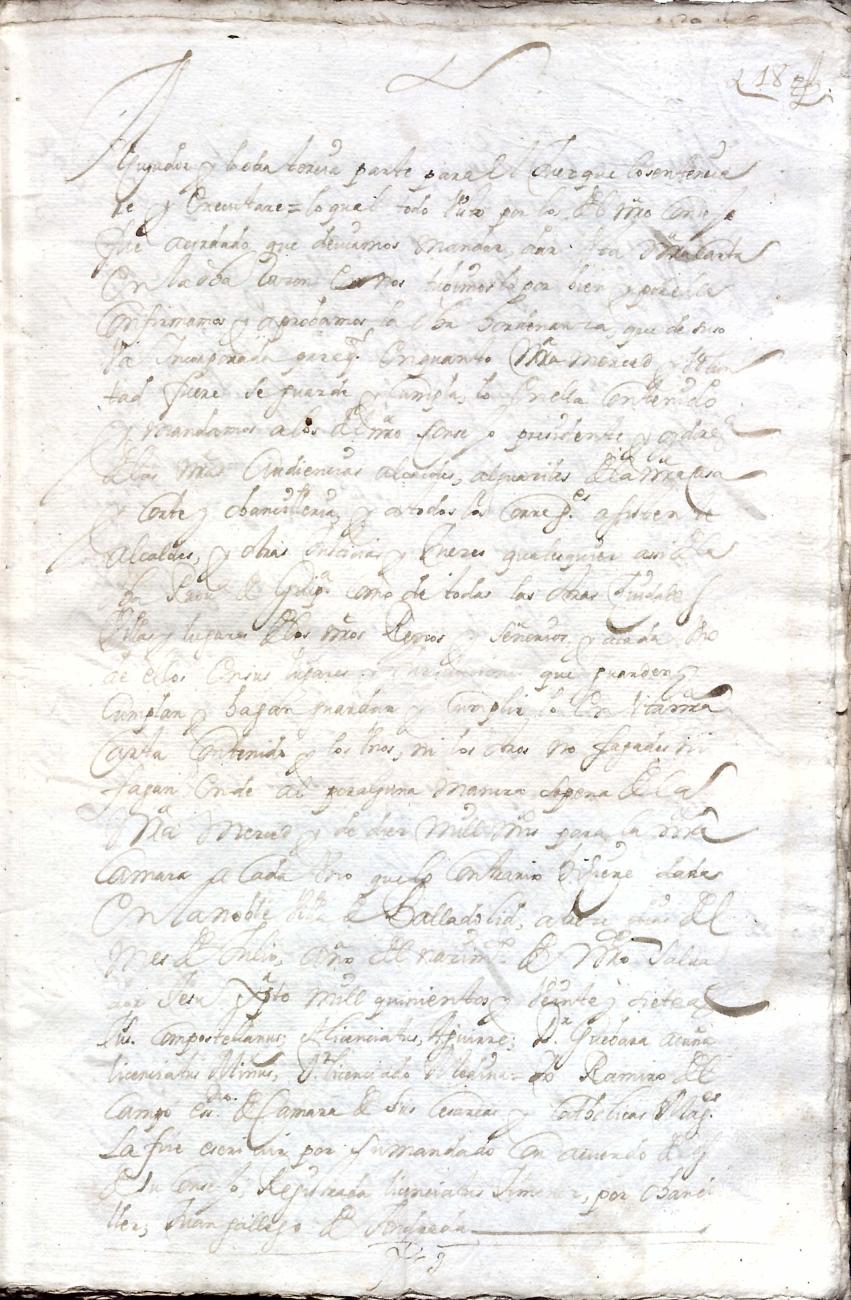 18
y la dha terçia parte para el Juez que lo sentençia
re y executare = lo qual todo visto por los del nro Conse jo
fue acordado que deviamos mandar dar esta nra carta
en la dha raçon e nos tubimoslo por bien y por la
confirmamos y aprobamos la dha hordenanza, que de suso
va incorporada para q. en quanto nra merced y volun
tad fuere se guarde y cumpla, lo en ella contenido
y mandamos a los del nro Consejo presidente y oydores
de las nras Audiencias alcaldes, alguaciles de la nra casa
y corte y chancilleria, y a todos los correges. asistente
Alcaldes, y otras Justicias y Jueces qualesquier asi de la
dha como de todas las otras Ciudades
Villas y lugares de los nros Reynos y señorios, y a cada vno
de ellos en sus lugares y Jurisdiciones que guarden y
cumplan y hagan guardar y cumplir lo en esta nra
Carta contenido y los vnos, ni los otros no fagades ni
fagan ende al por alguna manera so pena de la
nra merced y de diez mill mrs para la nra
Camara a cada vno que lo contrario hiçiere dada
en la noble Villa de Balladolid, a dias del
mes de Julio, año del nacimto. de nro Salva
dor Jesu Xpto mill quinientos y veinte y siete as
Compostellanus; licenciatus, Aguirre; Dr. Guebara acuña
licenciatus Minus, licenciado Medina = Yo Ramiro del
Campo esno. de Camara de sus Cesareas y Catholicas Mages.
La fice escrivir por su mandado con acuerdo de los
de su Consejo, Registrada licenciatus Ximenez, por chanci
ller; Juan gallego de Andrada